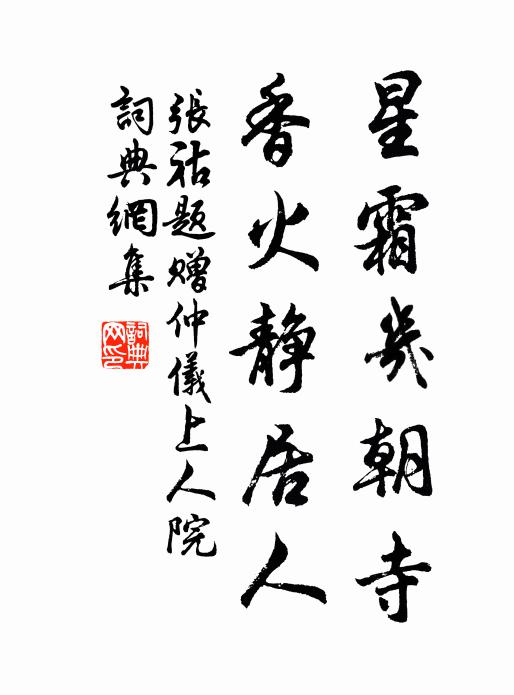 星霜幾朝寺
香火静居人
張祜題贈仲儀上人院
詞典網集
詞典網印